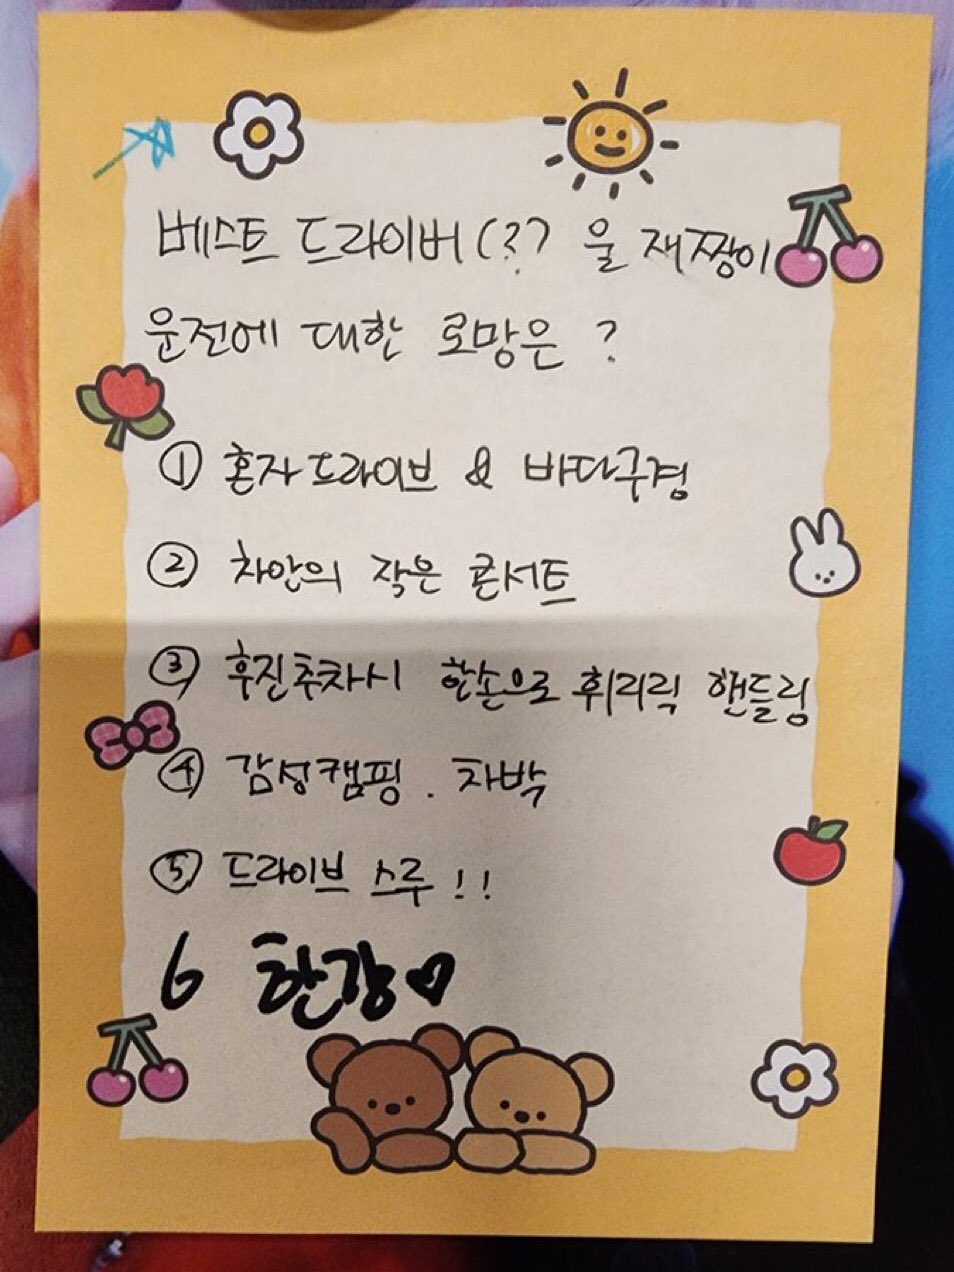 베스트 드라이버(?) 울 재짱이
운전에 대한 로망은 ?
① 혼자드라이브 & 바다구경
② 차안의 작은 콘서트
③ 후진주차시 한손으로 휘리릭 핸들링
④ 감성캠핑 . 차박
⑤ 드라이브 스루 !!
6 한강♡